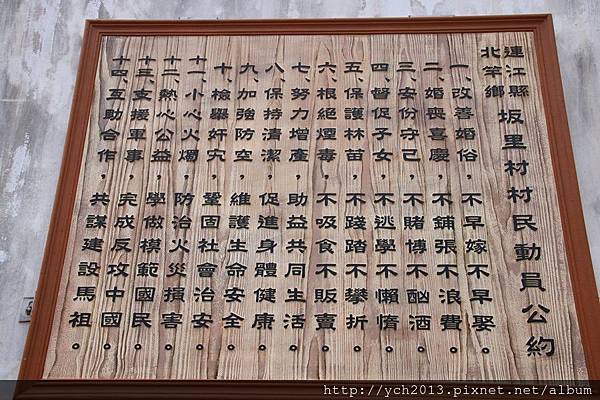 連江縣北竿鄉坂里村村民動員公約
一、改善婚俗，不早嫁不早娶。
二、婚喪喜慶，不鋪張不浪費。
三、安份守己，不賭博不酗酒。
四、督促子女，不逃學不懶惰。
五、保護林苗，不踐踏不攀折。
六、根絕煙毒，不吸食不販賣。
七、努力增產，助益共同生活。
八、保持清潔，促進身體健康。
九、加強防空，維護生命安全。
十、檢舉奸宄，鞏固社會治安。
十一、小心火燭，防治火災損害。
十二、熱心公益，學做模範國民。
十三、支援軍事，完成反攻中國。
十四、互助合作，共謀建設馬祖。
http://ych2013.pixnet.net/album